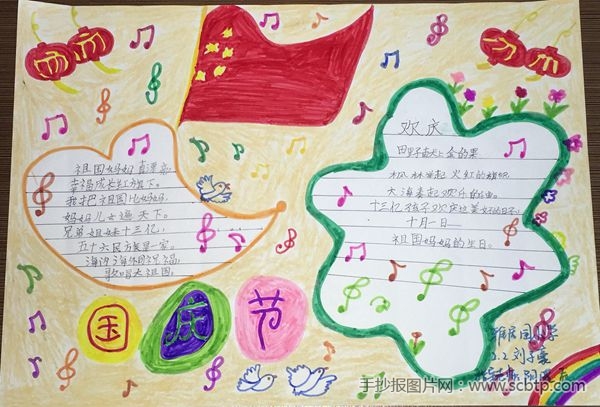 祖国妈妈真漂亮,
幸福成长红旗下。
我把祖国比妈妈,
妈妈儿女遍天下。
兄弟姐妹十三亿,
五十六民族是一家。
海内海外同祝福,
歌唱大祖国。
国庆节
欢庆
田野献上金的果
枫林举起火红的旗帜
大海奏起欢乐的
十三亿孩子欢庆这美好的日子
十月一日——
祖国妈妈的生日。
小学
3.2 刘子
手抄报图片网——www.scbtp.com